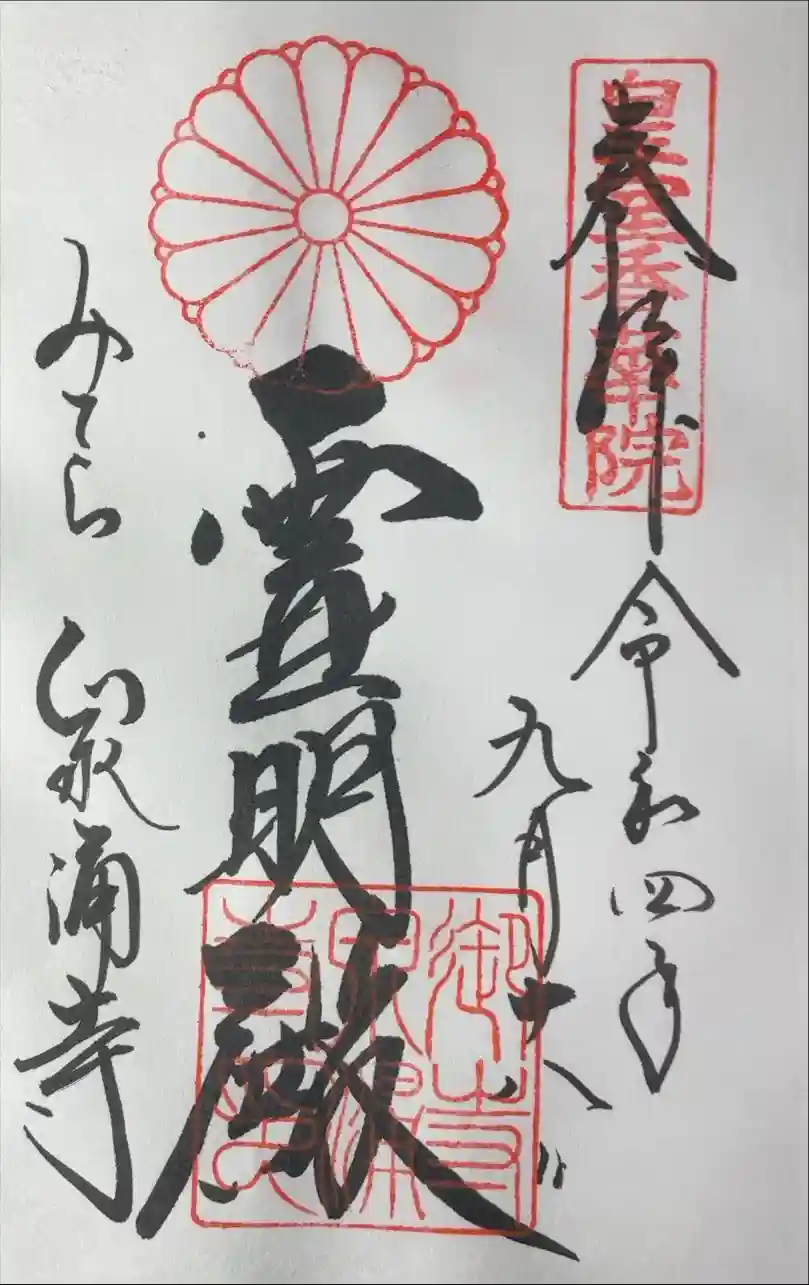 皇室香華院
奉拝
令和四年
九月十八日
霊明殿
御寺
泉涌
みてら 泉涌寺